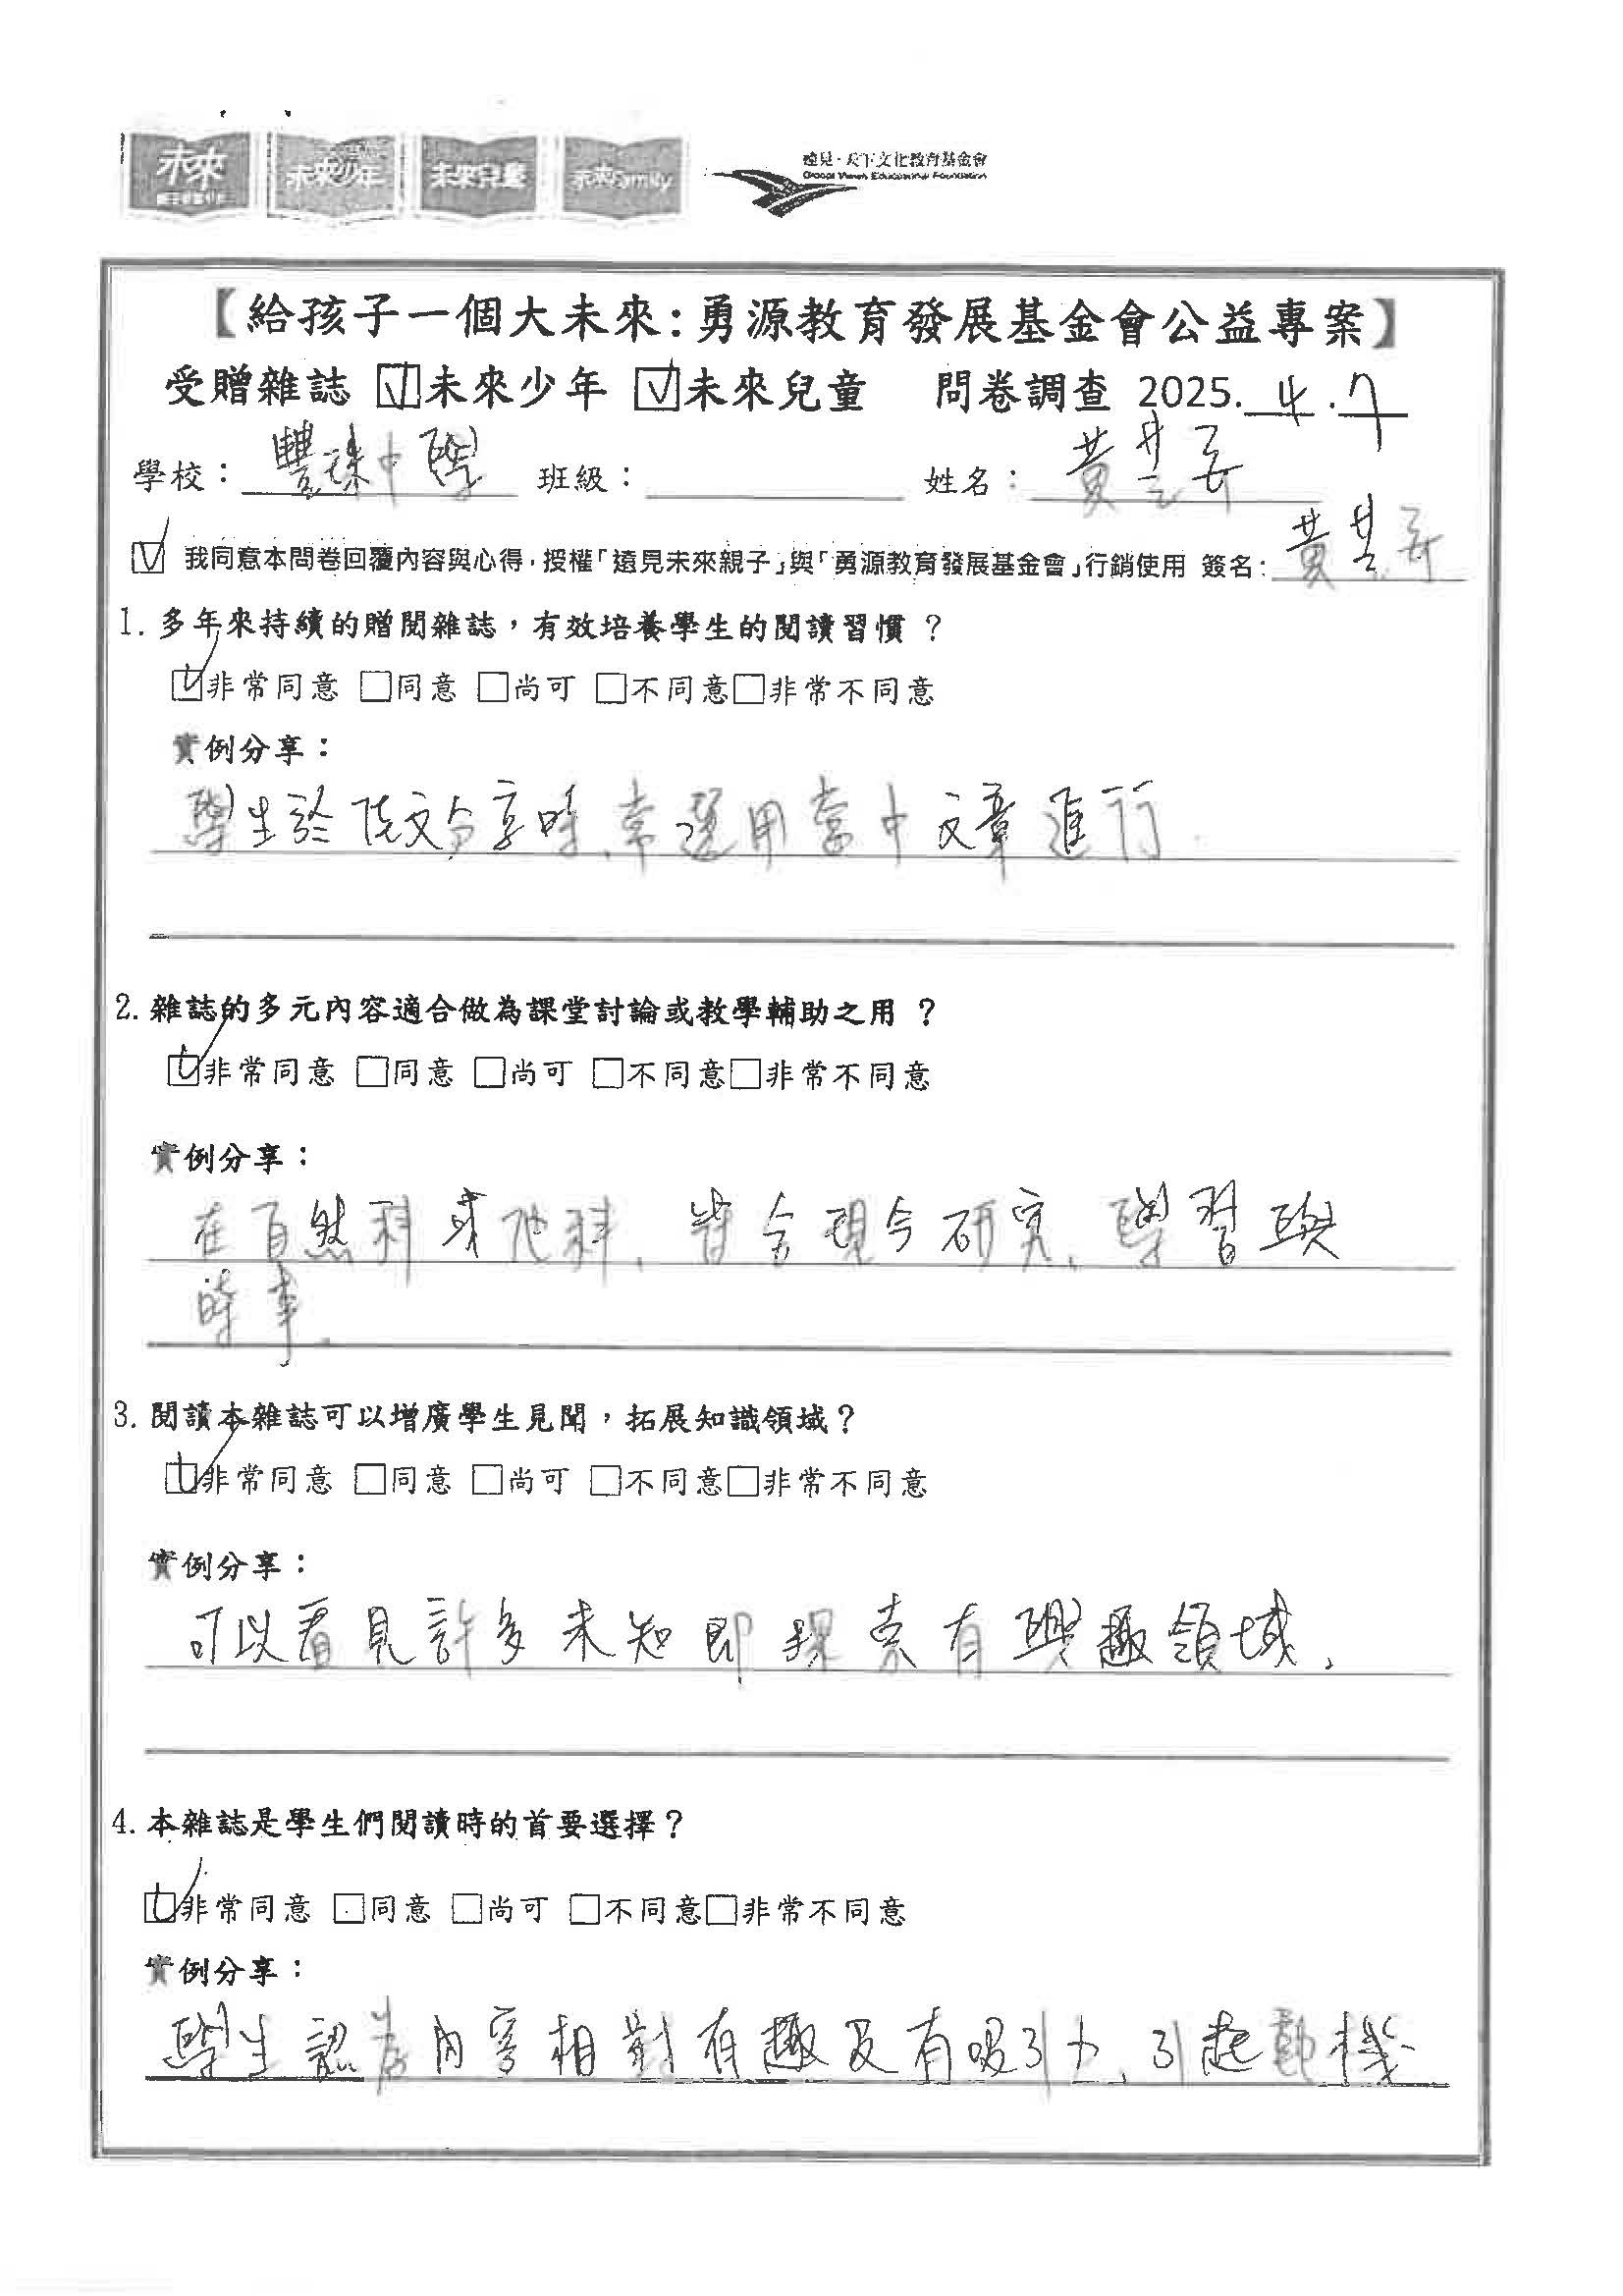 未來 未來少年 未來兒童 未來Family 遠見·天下文化教育基金會
Global Views Educational Foundation
【給孩子一個大未來:勇源教育發展基金會公益專案】
受贈雜誌 ☑未來少年 ☑未來兒童 問卷調查 2025.4.7
學校:豐珠中學 班級: 姓名:黃
☑ 我同意本問卷回覆內容與心得,授權「遠見未來親子」與「勇源教育發展基金會」行銷使用 簽名:黃
1. 多年來持續的贈閱雜誌,有效培養學生的閱讀習慣?
☑非常同意 □同意 □尚可 □不同意□非常不同意
實例分享:
學生於 文分享時,常選用當中文章進行.
2. 雜誌的多元內容適合做為課堂討論或教學輔助之用?
☑非常同意 □同意 □尚可 □不同意□非常不同意
實例分享:
在自然科或地科,皆含現今研究,學習與
時事.
3. 閱讀本雜誌可以增廣學生見聞,拓展知識領域?
☑非常同意 □同意 □尚可 □不同意□非常不同意
實例分享:
可以看見許多未知即探索有興趣領域.
4. 本雜誌是學生們閱讀時的首要選擇?
☑非常同意 □同意 □尚可 □不同意□非常不同意
實例分享:
學生認為內容相對有趣及有吸引力,引起動機